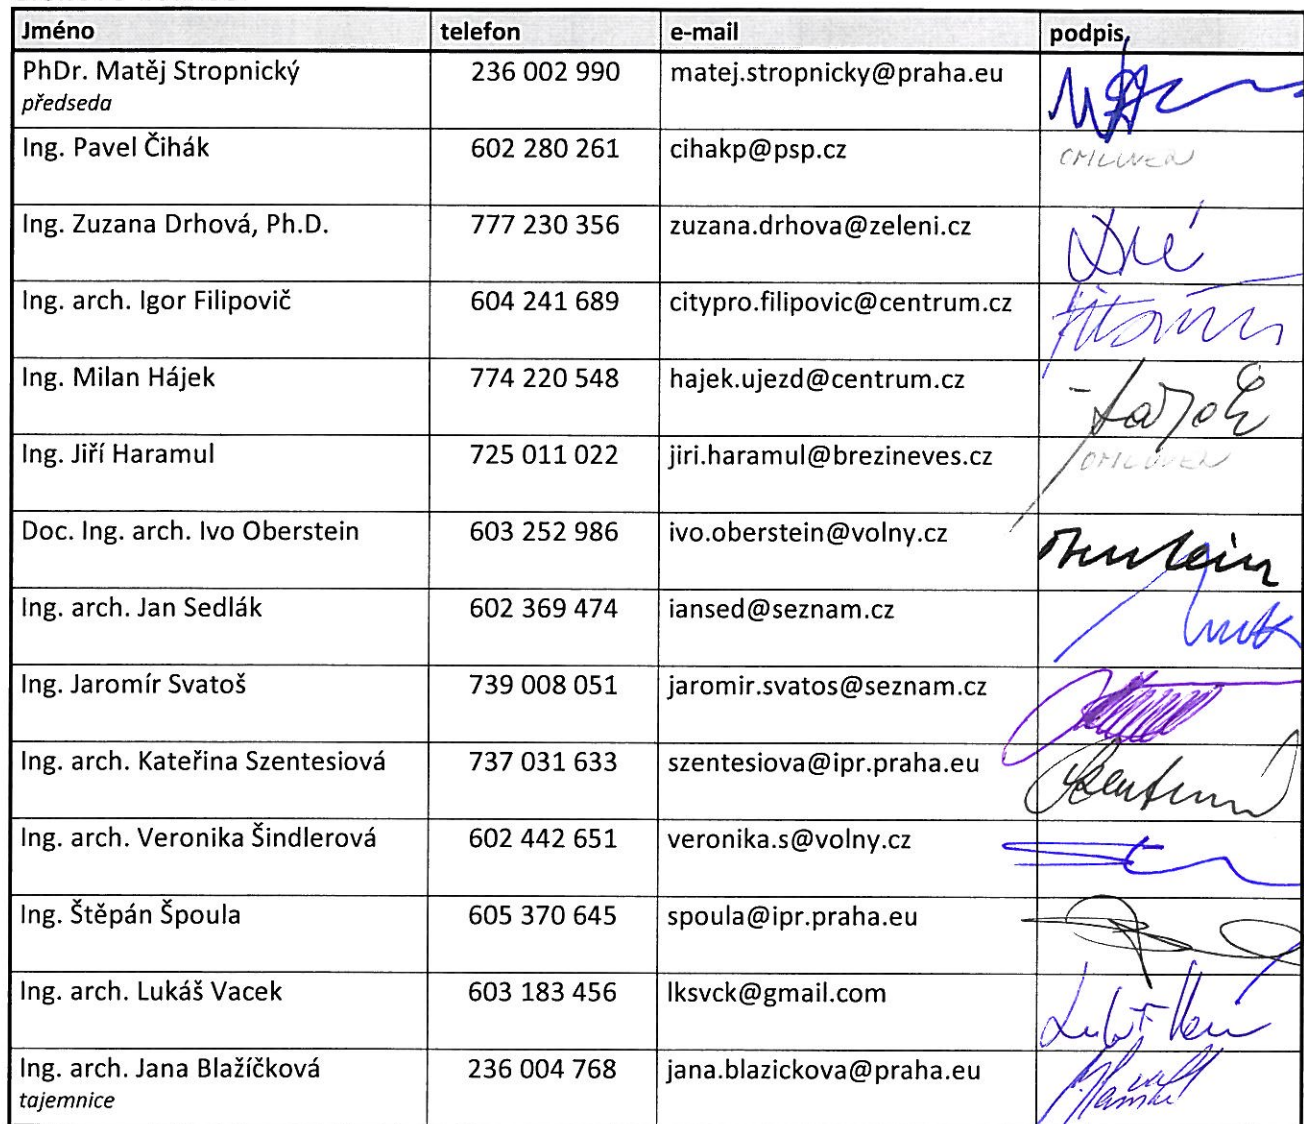 Jméno telefon e-mail podpis
PhDr. Matěj Stropnický 236 002 990 matej.stropnicky@praha.eu
předseda
Ing. Pavel Čihák 602 280 261 cihakp@psp.cz OMLUVEN
Ing. Zuzana Drhová, Ph.D. 777 230 356 zuzana.drhova@zeleni.cz
Ing. arch. Igor Filipovič 604 241 689 citypro.filipovic@centrum.cz
Ing. Milan Hájek 774 220 548 hajek.ujezd@centrum.cz
Ing. Jiří Haramul 725 011 022 jiri.haramul@brezineves.cz OMLUVEN
Doc. Ing. arch. Ivo Oberstein 603 252 986 ivo.oberstein@volny.cz
Ing. arch. Jan Sedlák 602 369 474 iansed@seznam.cz
Ing. Jaromír Svatoš 739 008 051 jaromir.svatos@seznam.cz
Ing. arch. Kateřina Szentesiová 737 031 633 szentesiova@ipr.praha.eu
Ing. arch. Veronika Šindlerová 602 442 651 veronika.s@volny.cz
Ing. Štěpán Špoula 605 370 645 spoula@ipr.praha.eu
Ing. arch. Lukáš Vacek 603 183 456 lksvck@gmail.com
Ing. arch. Jana Blažíčková 236 004 768 jana.blazickova@praha.eu
tajemnice